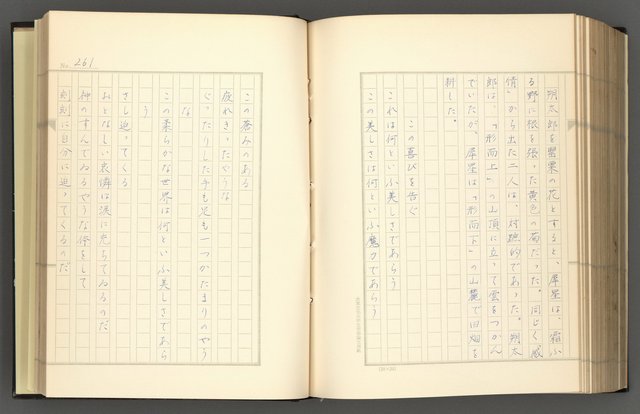 朔太郎を罌粟の花とすると、犀星は、霜ふ
る野に根を張った黄色の菊だった。同じく「感
情」から出た二人は、対蹠的であった。朔太
郎は、『形而上』の山頂に立って雲をつかん
でいたが、犀星は『形而下』の山麓で田畑を
耕した。
この喜びを告ぐ
これは何といふ美しさであらう
この美しさは何といふ魔力であらう
(20×20)
No. 261
この蒼みのある
疲れきったやうな
ぐったりした手も足も一つかたまりのやう
な
この柔らかな世界は何といふ美しさであら
う
さし迫ってくる
おとなしい哀憐は涙に充ちてゐるのだ
神のすんでゐるやうな優をして
刻刻に自分に迫ってくるのだ